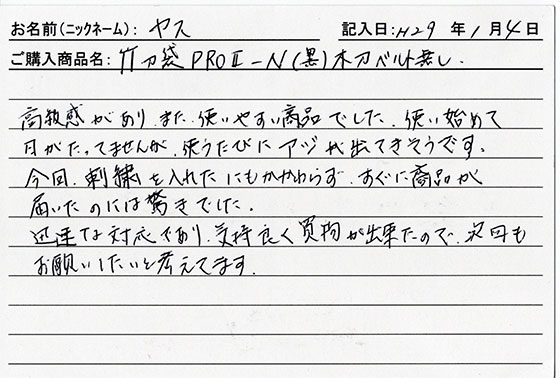 お名前(ニックネーム): ヤス 記入日: H29 年 1 月 4 日
ご購入商品名: 竹刀袋 PROⅡ-N(黒)木刀ベルト無し.
高級感があり、また、使いやすい商品でした。使い始めて
日がたってませんが、使うたびにアジが出てきそうです。
今回、刺繍を入れたにもかかわらず、すぐに商品が
届いたのには驚きでした.
迅速な対応であり、気持良く買物が出来たので、次回も
お願いしたいと考えてます.